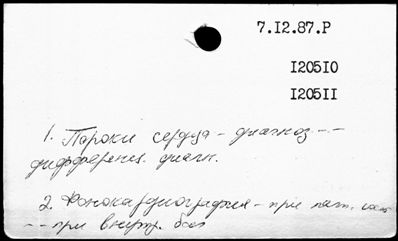 7.I2.87.P
I205I0
I205II
1. Пороки сердца - диагноз --
дифференц. диагн.
2. Фонокардиография - при пат. сост.
-- при внутр. бол